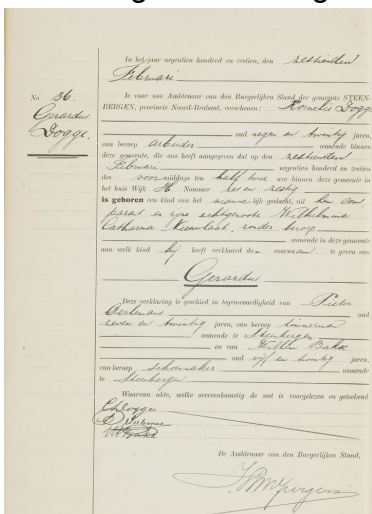 No 36.
Gerardus
Dogge.
In het jaar negentien honderd en zestien, den zestienden
Februari
is voor ons Ambtenaar van den Burgerlijken Stand der gemeente STEEN-
BERGEN, provincie Noord-Brabant, verschenen: Kornelis Dogge
oud negen en twintig jaren,
van beroep arbeider wonende binnen
deze gemeente, die ons heeft aangegeven dat op den zestienden
Februari negentien honderd en zestien
des voormiddags ten half twee ure binnen deze gemeente in
het huis Wijk H Nummer zes en zestig
is geboren een kind van het mannelijk geslacht, uit hem com
parant en zijne echtgenoote Wilhelmina
Catharina Nieuwlaat, zonder beroep
wonende in deze gemeente
aan welk kind hij heeft verklaard den voornaam te geven van
Gerardus
Deze verklaring is geschied in tegenwoordigheid van Pieter
oud
zeven en twintig jaren, van beroep timmerman
wonende te Steenbergen
en van Willem
oud vijf en twintig jaren,
van beroep schoenmaker wonende
te Steenbergen
Waarvan akte, welke overeenkomstig de wet is voorgelezen en geteekend
Dogge
De Ambtenaar van den Burgerlijken Stand,